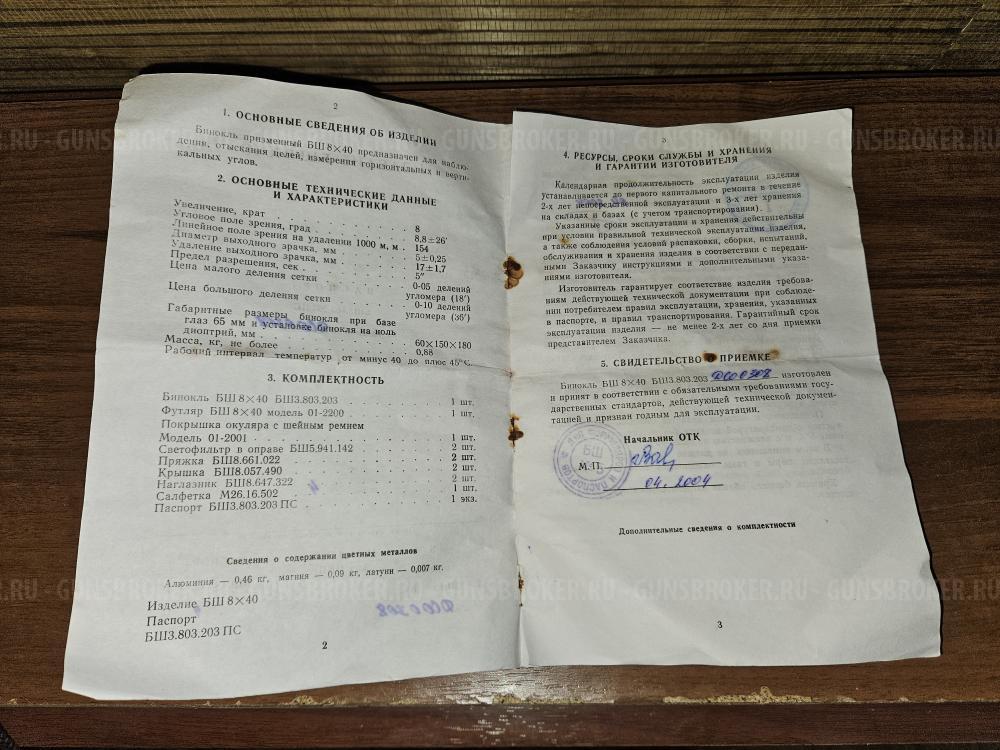 2
1. ОСНОВНЫЕ СВЕДЕНИЯ ОБ ИЗДЕЛИИ
Бинокль призменный БШ 8×40 предназначен для наблю-
дения, отыскания целей, измерения горизонтальных и верти-
кальных углов.
2. ОСНОВНЫЕ ТЕХНИЧЕСКИЕ ДАННЫЕ
И ХАРАКТЕРИСТИКИ
Увеличение, крат . . . . . . . 8
Угловое поле зрения, град . . . . . . 8,8±26′
Линейное поле зрения на удалении 1000 м, м . 154
Диаметр выходного зрачка, мм . . . . 5±0,25
Удаление выходного зрачка, мм . . . . 17±1,7
Предел разрешения, сек . . . . . . 5″
Цена малого деления сетки . . . . 0-05 делений
угломера (18′)
Цена большого деления сетки . . . 0-10 делений
угломера (36′)
Габаритные размеры бинокля при базе
глаз 65 мм и установке бинокля на ноль
диоптрий, мм . . . . . . . 60×150×180
Масса, кг, не более . . . . . . 0,88
Рабочий интервал температур от минус 40 до плюс 45°С.
3. КОМПЛЕКТНОСТЬ
Бинокль БШ 8×40 БШ3.803.203 . . . . 1 шт.
Футляр БШ 8×40 модель 01-2200 . . . . 1 шт.
Покрышка окуляра с шейным ремнем
Модель 01-2001 . . . . . . . 1 шт.
Светофильтр в оправе БШ5.941.142 . . . 2 шт.
Пряжка БШ8.661.022 . . . . . . 2 шт.
Крышка БШ8.057.490 . . . . . . 2 шт.
Наглазник БШ8.647.322 . . . . . 2 шт.
Салфетка М26.16.502 . . . . . . 1 шт.
Паспорт БШ3.803.203 ПС . . . . . 1 экз.
Сведения о содержании цветных металлов
Алюминия — 0,46 кг, магния — 0,09 кг, латуни — 0,007 кг.
Изделие БШ 8×40
Паспорт
БШ3.803.203 ПС
2
3
4. РЕСУРСЫ, СРОКИ СЛУЖБЫ И ХРАНЕНИЯ
И ГАРАНТИИ ИЗГОТОВИТЕЛЯ
Календарная продолжительность эксплуатации изделия
устанавливается до первого капитального ремонта в течение
2-х лет непосредственной эксплуатации и 3-х лет хранения
на складах и базах (с учетом транспортирования).
Указанные сроки эксплуатации и хранения действительны
при условии правильной технической эксплуатации изделия,
а также соблюдения условий распаковки, сборки, испытаний,
обслуживания и хранения изделия в соответствии с передан-
ными Заказчику инструкциями и дополнительными указа-
ниями изготовителя.
Изготовитель гарантирует соответствие изделия требова-
ниям действующей технической документации при соблюде-
нии потребителем правил эксплуатации, хранения, указанных
в паспорте, и правил транспортирования. Гарантийный срок
эксплуатации изделия — не менее 2-х лет со дня приемки
представителем Заказчика.
5. СВИДЕТЕЛЬСТВО О ПРИЕМКЕ
Бинокль БШ 8×40 БШ3.803.203 ДС00308 изготовлен
и принят в соответствии с обязательными требованиями госу-
дарственных стандартов, действующей технической докумен-
тацией и признан годным для эксплуатации.
Начальник ОТК
М. П.
БШ
И ПАСПОРТОВ
04. 2004
Дополнительные сведения о комплектности
3
GUNSBROKER.RU
GUNSBROKER.RU